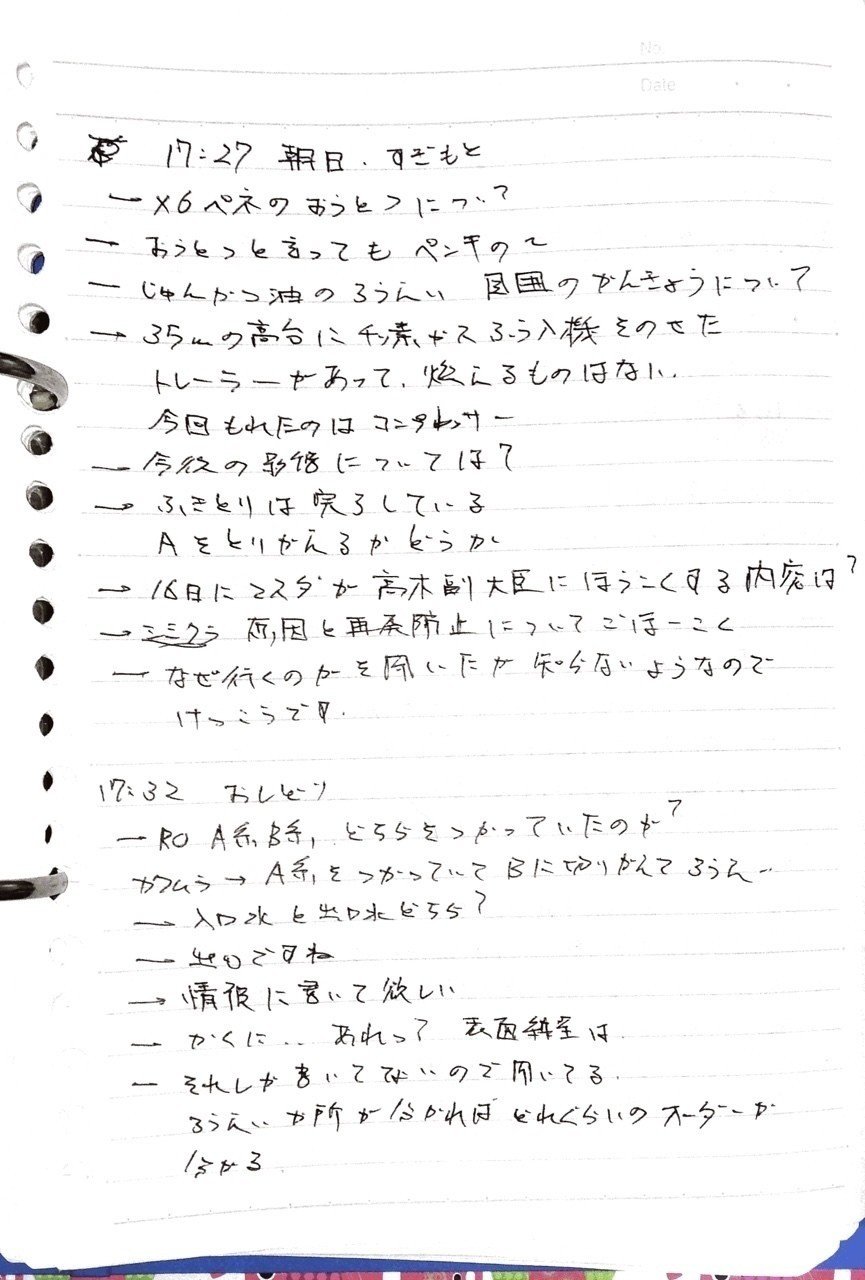 No.
Date
17:27 朝日.すぎもと
ー X6ペネのおうとつについて?
→ おうとつと言ってもペンキの〜
ー じゅんかつ油のろうえい 周囲のかんきょうについて?
→ 35mの高台にチッ素ガスふう入機をのせた
トレーラーがあって、燃えるものはない.
今回もれたのはコンプレッサー
ー 今後の影響については?
→ ふきとりは完了している
Aをとりかえるかどうか
→ 16日にマスダが高木副大臣にほうこくする内容は?
→ シミクラ 原因と再発防止についてごほーこく
ー なぜ行くのかを聞いたが知らないようなので
けっこうです.
17:32 おしどり
ー RO A系,B系,どちらをつかっていたのか?
カワムラ → A系,をつかっていてBに切りかえてろうえ..
→ 入口水と出口水どちら?
ー 出口ですね
→ 情報に書いて欲しい
ー かくに.. あれって? 表面線量は.
ー それしか書いてないので聞いてる.
ろうえいか所が分かればどれぐらいのオーダーか
分かる.